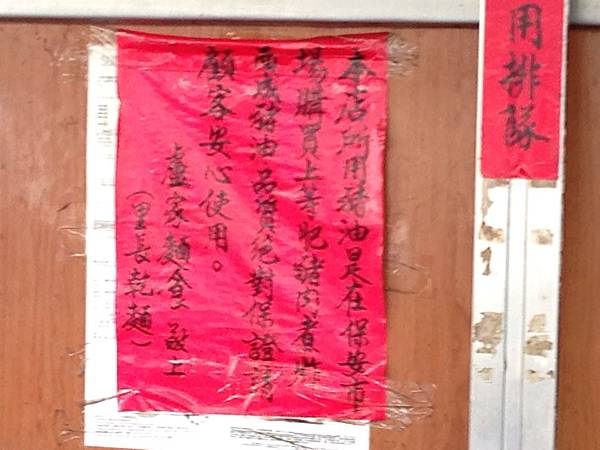 用排隊
本店所用猪油是在保安市
場購買上等肥豬肉煮炸
而成猪油品質絕對保證請
顧客安心使用。
盧家麵食 敬上
（里長乾麵）